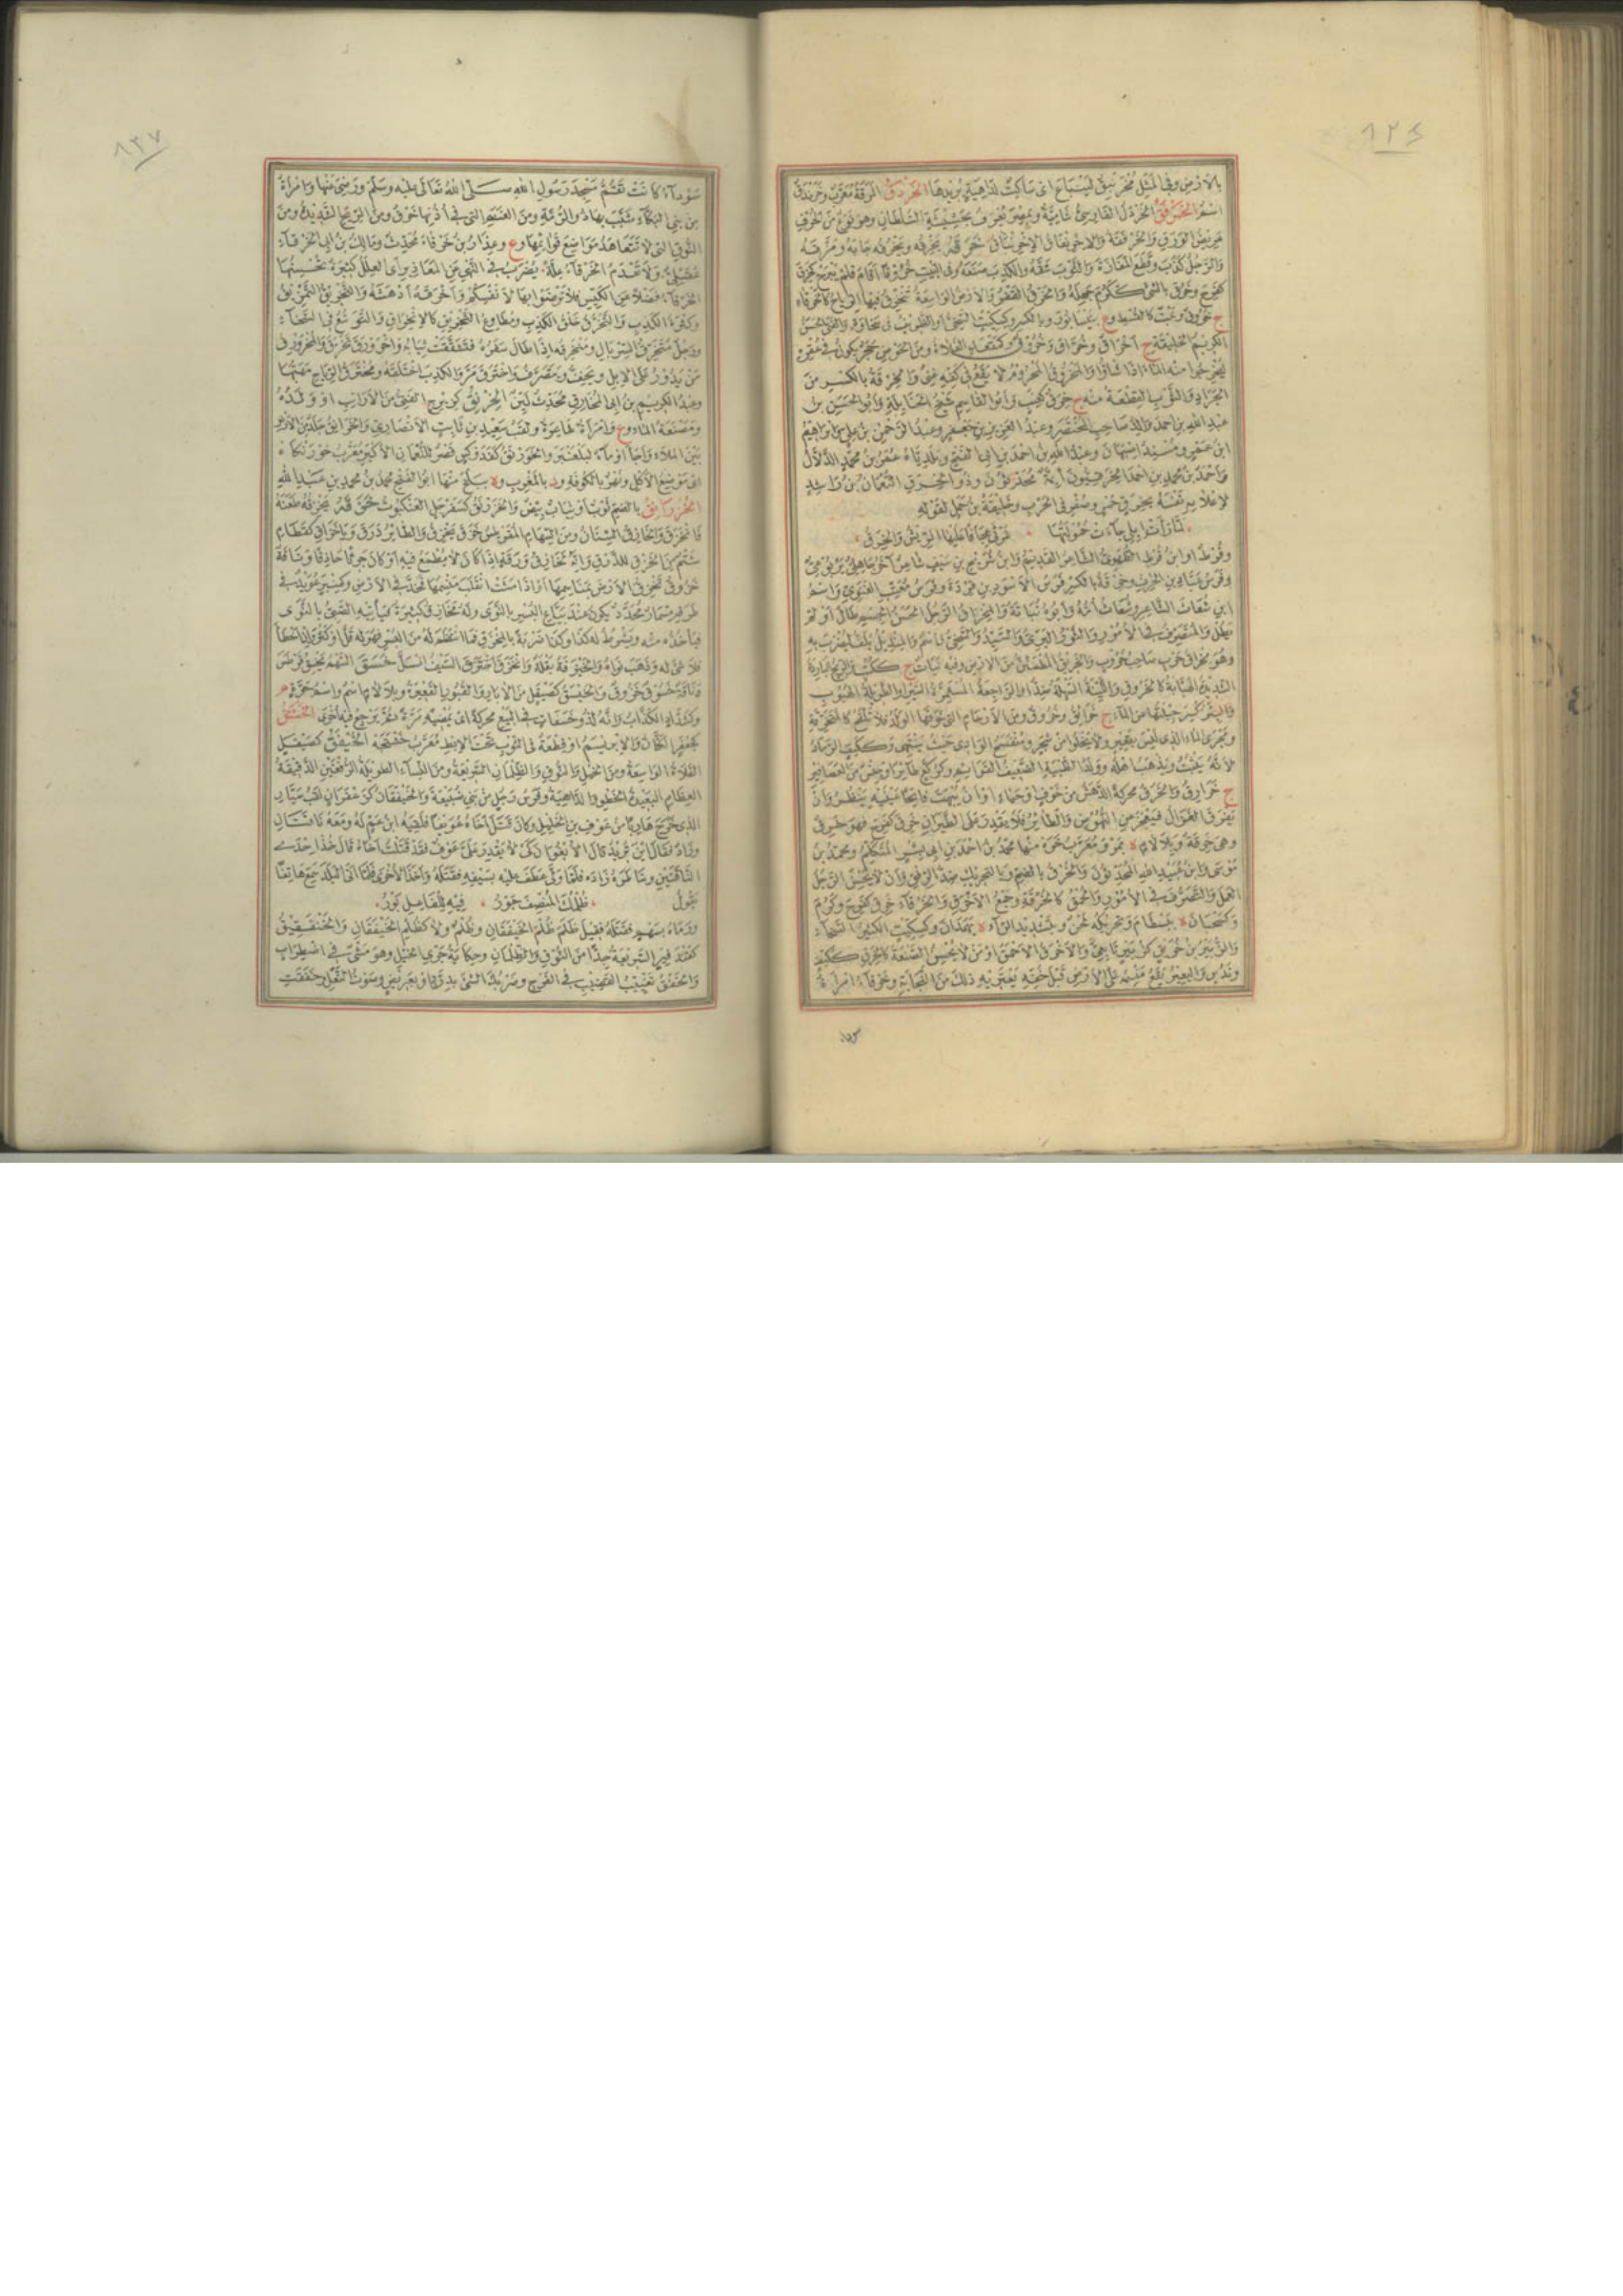 بالارض وفى المثل مخرنبق لينباع اى ساكت لداهية يريدها الخردق المرقة معرب وخرندق
اسم الخرفق الخردل الفارسى شامية وبمصر تعرف بحشيشة السلطان وهو نوع من الحرف
عريض الورق
خرقه يخرقه ويخرقه جابه ومزقه
والرجل كذب وقطع المفازة والثوب شقه والكذب صنعه وفى البيت خروقا اقام فلم يبرح كخرق
كفرح وخرق بالشىء ككرم جهله والخرق القفر والارض الواسعة تتخرق فيها الرياح كالخرقاء
ج خروق ونبت كالقسط وع بنيسابور وبالكسر وكسكيت السخى او الظريف فى سخاوة والفتى الحسن
الكريم الخليقة ج اخراق وخراق وخروق وكمقعد الفلاة ومن الحوض حجر يكون فى عقره
ليخرجوا منه الماء اذا شاؤا والمخروق المحروم لا يقع فى كفه غنى والخرقة بالكسر من
الجراد والثوب القطعة منه ج خرق كعنب وابو القاسم شيخ الحنابلة وابو الحسين بن
عبد الله بن احمد والد صاحب المختصر وعبد العزيز بن جعفر وعبد الرحمن بن على وابراهيم
ابن عمرو ومسند اصبهان وعبد الله بن احمد بن ابى الفتح وبلديّاه عمر بن محمد الدلال
واحمد بن محمد بن احمد الخرقيون ائمة محدثون وذو الخرق النعمان بن راشد
لاعلامه نفسه بخرق حمر وصفر فى الحرب وخليفة بن حمل لقوله
لما رأت ابلى جاءت حمولتها غرثى عجافا عليها الريش والخرق
وقرط او ابن قرط الطهوى الشاعر القديم وابن شريح بن سيف شاعر آخر جاهلى يربوعى
وفرس عباد بن الحرث وخرقة بالكسر فرس الاسود بن قردة وفرس معتب الغنوى واسم
ابن شعاث الشاعر وشعاث امه وابوه نباتة والمخراق الرجل الحسن الجسم طال او لم
يطل والمتصرف فى الامور والثور البرى والسيد والسخى واسم والمنديل يلف ليضرب به
وهو مخراق حرب صاحب حروب والخريق المطمئن من الارض وفيه نبات ج ككتب والريح الباردة
الشديدة الهبابة كالخروق واللينة السهلة ضد او الراجعة المستمرة السير او الطويلة الهبوب
والبئر كسر جبلتها من الماء ج خرائق وخرق ومن الارحام التى خرقها الولد فلا تلقح كالمتخرقة
ومجرى الماء الذى ليس بقعير ولا يخلو من شجر ومنفسح الوادى حيث ينتهى وككتف الرماد
لانه يثبت ويذهب اهله وولد الظبية الضعيف القوائم وكركع طائر او جنس من العصافير
ج خرارق والخرق محركة الدهش من خوف او حياء او ان يبهت فاتحا عينيه ينظر وان
يفرق الغزال فيعجز عن النهوض والطائر فلا يقدر على الطيران خرق كفرح فهو خرق
وهى خرقة وبلا لام ة بمرو معرب خره منها محمد بن احمد بن ابى بشر المتكلم ومحمد بن
موسى وابن عبيد الله المحدثون والخرق بالضم وبالتحريك ضد الرفق وان لا يحسن الرجل
العمل والتصرف فى الامور والحمق كالخرقة وجمع الاخرق والخرقاء خرق كفرح وكرم
وكسحبان ة ببسطام وتحريكه لحن وبتشديد الراء ة بهمذان وكسكيت الكثير السخاء
والزبير بن خريق كزبير تابعى والاخرق الاحمق او من لا يحسن الصنعة كالخرق ككتف
وندس والبعير يقع منسمه على الارض قبل خفه يعتريه ذلك من النجابة وخرقاء امرأة
سوداء
سوداء كانت تقم مسجد رسول الله صلى الله تعالى عليه وسلم ورضى عنها وامرأة
من بنى البكاء شبب بها ذو الرمة ومن الغنم التى فى اذنها خرق ومن الريح الشديدة ومن
النوق التى لا تتعاهد مواضع قوائمها وع وعذار بن خرقاء محدث ومالك بن ابى الخرقاء
عقيلى ولا تعدم الخرقاء علة يضرب فى النهى عن المعاذير اى العلل كثيرة تحسنها
الخرقاء فضلا عن الكيس فلا ترضوا بها لانفسكم واخرقه ادهشه والتخريق التمزيق
وكثرة الكذب والتخرق خلق الكذب ومطاوع التخريق كالانخراق والتوسع فى السخاء
ورجل متخرق السربال ومنخرقه اذا طال سفره فتشققت ثيابه واخرورق تخرق والمخرورق
من يدور على الابل ويخف ويتصرف واخترق مر والكذب اختلقه ومخترق الرياح مهبها
وعبد الكريم بن ابى المخارق محدث لين الخرنق كزبرج الفتى من الارانب او ولده
ومصنعة الماء وع وامرأة شاعرة ولقب سعيد بن ثابت الانصارى والخرانق جلد من الارض
بين الملا واجأ او ماء لبلعنبر والخورنق كفدوكس قصر للنعمان الاكبر معرب خورنكاه
اى موضع الاكل ونهر بالكوفة ود بالمغرب وة ببلخ منها ابو الفتح محمد بن محمد بن عبد الله
الخزرانق بالضم ثوب او ثياب بيض والخزرنق كسفرجل العنكبوت خزقه يخزقه طعنه
فانخزق والخازق السنان ومن السهام المقرطس خزق يخزق والطائر ذرق ويا خزاق كقطام
شتم من الخزق للذرق وانه لخازق ورقة اذا كان لا يطمع فيه او كان جريئا حاذقا وناقة
خزوق تخزق الارض بمناسمها او اذا مشت انقلب منسمها فخد فى الارض وكمنبر عويد فى
طرفه مسمار محدد يكون عند بياع البسر بالنوى وله مخازق كثيرة فيأتيه الصبى بالنوى
فيأخذه منه ويشرط له كذا وكذا ضربة بالمخزق فما انتظم له من البسر فهو له قل او كثر وان اخطأ
فلا شىء له وذهب نواه والخزقة بقلة وانخزق اخترق السيف انسل خسق السهم يخسق قرطس
وناقة خسوق خزوق والخيسق كصيقل من الآبار والقبور القعيرة وبلا لام اسم واسم حرة م
وكشداد الكذاب وانه لذو خسقات فى البيع محركة اى يمضيه مرة ثم يرجع فيه اخرى الخشتق
كجعفر الكتان والابريسم او قطعة فى الثوب تحت الابط معرب خشتجه الخيفق كصيقل
الفلاة الواسعة ومن الخيل والنوق والظلمان السريعة ومن النساء الطويلة الرفغين الدقيقة
العظام البعيدة الخطو والداهية وفرس رجل من بنى ضبيعة والخيفقان كزعفران لقب سيار
الذى خرج هاربا من عوف بن الخليل وكان قتل اخاه عويفا فلقيه ابن عم له ومعه ناقتان
وزاد فقال اين تريد قال لئلا يقدر على عوف فقد قتلت اخاه قال خذ احدى
الناقتين وشاطره زاده فلما ولى عطف عليه بسيفه فقتله واخذ الاخرى فلما اتى البلد سمع هاتفا
يقول ظلمك المنصف جور فيه للفاعل بور
ورماه بسهم فقتله فقيل ظلم ظلم الخيفقان وظلم ولا كظلم الخيفقان والخنفقيق
كقندفير السريعة جدا من النوق والظلمان وحكاية جرى الخيل وهو مشى فى اضطراب
والخفق تغييب القضيب فى الفرج وضربك الشىء بدرة او بعريض وصوت النعل وخفقت